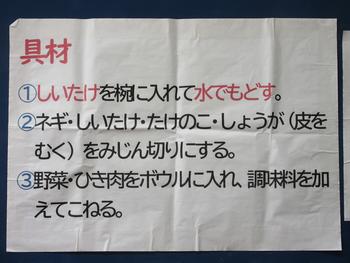 具材
①しいたけを椀に入れて水でもどす。
②ネギ・しいたけ・たけのこ・しょうが（皮を
むく）をみじん切りにする。
③野菜・ひき肉をボウルに入れ、調味料を加
えてこねる。